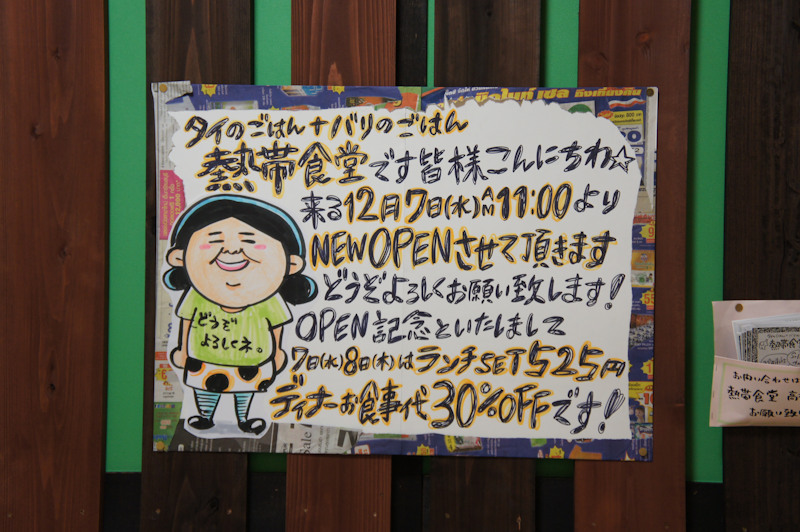 タイのごはん+バリのごはん
熱帯食堂です皆様こんにちわ☆
来る12月7日(水)AM11:00より
NEW OPENさせて頂きます
どうぞよろしくお願い致します!
OPEN記念といたしまして
7日(水)8日(木)はランチSET525円
ディナーお食事代30%OFFです!
どうぞ
よろしくネ。
熱帯食堂
お問い合わせは
熱帯食堂 高
お願い致